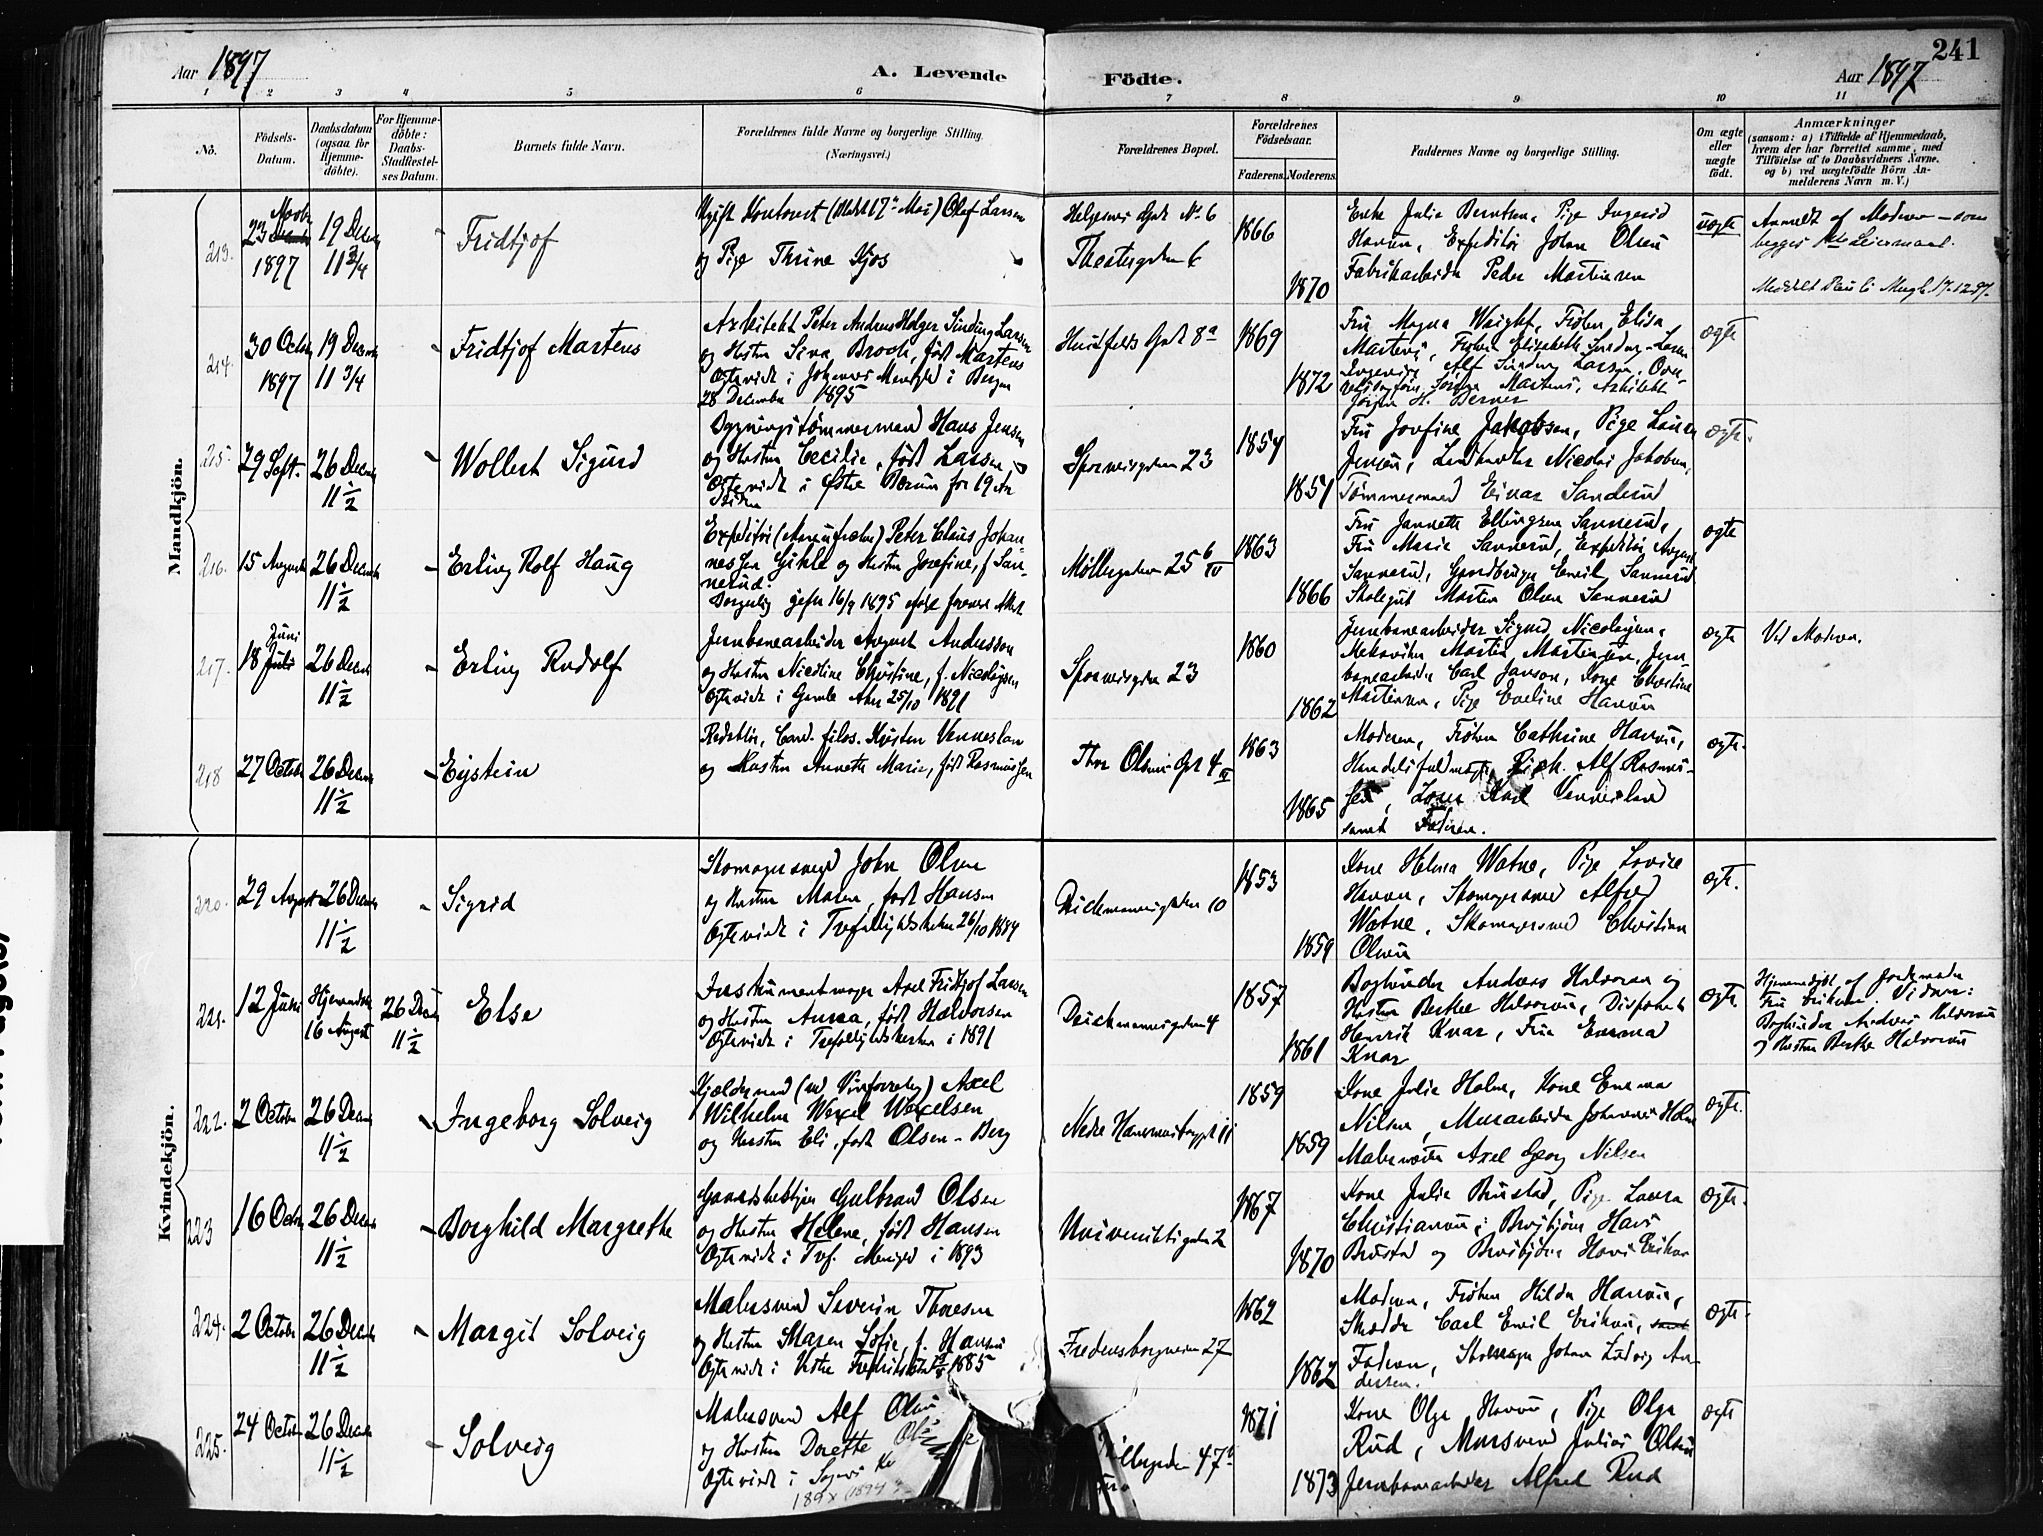 241
Aar 1897
A. Levende Födte.
Aar 1897
1 2 3 4 5 6 7 8 9 10 11
No.
Födsels-Datum.
Daabsdatum (ogsaa for Hjemme-döbte).
For Hjemme-döbte: Daabs-Stadfæstel-ses Datum.
Barnets fulde Navn.
Forældrenes fulde Navne og borgerlige Stilling. (Næringsvei.)
Forældrenes Bopæl.
Forældrenes Födselsaar.
Faderens. Moderens.
Faddernes Navne og borgerlige Stilling.
Om ægte eller uægte födt.
Anmærkninger
(saasom: a) i Tilfælde af Hjemmedaab, hvem der har forrettet samme, med Tilföielse af to Daabsvidners Navne, og b) ved uægtefödte Börn An-melderens Navn m. V.)
Mandkjön.
213. 23 Novbr 1897
19 Decem 11 3/4
Fridtjof
Ugift Kontorist (Mekt 17de Mai) Olaf Larsen
og Pige Thrine Gjøs
Helgesens Gade No. 6
Theatergaden 6
1866
1870
Enke Julie Berntsen, Pige Ingerid
Hansen, Expeditør Johan Olsen
Fabrikarbeider Peder Martinsen
uægte
Anmeldt af Moderen - som
begges 1ste Leiermaal.
214. 30 Octob 1897
19 Decem 11 3/4
Fridtjof Martens
Arkitekt Peter Andreas Holger Sinding Larsen
og Hustru Siva Broch, født Martens
Ægteviet i Johannes Menighed i Bergen
28 December 1895
Huitfeldts Gade 8a
1869
1872
Fru Magna Wright, Frøken Elisa
Martens, Frøken Elisabeth Sinding-Larsen
Ingeniør Alf Sinding Larsen, Over-
retssagfører Jørgen Martens, Arkitekt
Jørgen H. Berner
ægte
215. 29 Sept.
26 Decem 11 1/2
Wollert Sigurd
Bygningstømmermand Hans Jensen
og Hustru Cecilie, født Larsen
Ægteviet i Østre Bærum for 19 Aar
siden
Sporveisgaden 23
1854
1851
Fru Josefine Jakobsen, Pige Laura
Jensen, Landhandler Nicolai Jakobsen,
Tømmermand Einar Sanderud
ægte.
216. 15 August
26 Decem 11 1/2
Erling Rolf Haug
Expeditør (Margarinfabr) Peter Claus Johan-
nessen Gihle og Hustru Josefine, f. San-
nerud.
Borgerlig gifte 16/9 1895
Møllergaden 25 b IV
1863
1866
Fru Jannette Ellingsen Sannerud,
Fru Marie Sannerud, Expeditør August
Sannerud, Gaardbruger Emil Sannerud
Skolegut Morten Olsen Sannerud
ægte
217. 18 Juni Juli
26 Decem 11 1/2
Erling Rudolf
Jernbanearbeider August Andersson
og Hustru Nicoline Christine, f. Nicolaysen
Ægteviet i Gamle Aker 25/10 1891
Sporveisgaden 23
1860
1862
Jernbanearbeider Sigurd Nicolaysen,
Mekaniker Martin Martinsen, Jern-
banearbeider Carl Janson, Kone Christine
Martinsen, Pige Eveline Hansen
ægte
Ved Moderen.
218 27 Octob
26 Decem 11 1/2
Eystein
Redaktør, Cand. filos. Kristen Venneslan
og Hustru Annette Marie, født Rasmussen
Thor Olsens Gd 4 IV
1863
1865
Moderen, Frøken Cathrine Hansen,
Handelsfuldmægt. Rich. Alf Rasmus-
sen, Karl Venneslan
samt Faderen.
ægte.
Kvindekjön.
220. 29 August
26 Decem 11 1/2
Sigrid
Skomagersvend John Olsen
og Hustru Maren, født Hansen
Ægteviet i Trefoldighedskirken 26/10 1884
Deichmannsgaden 10
1853
1859
Kone Helma Watne, Pige Lovise
Hansen, Skomagersvend Alfred
Watne, Skomagersvend Christian
Olsen
ægte.
221. 12 Juni
Hjemmedøbt 16 August
26 Decem 11 1/2
Else
Instrumentmager Axel Fridtjof Larsen
og Hustru Anna, født Halvorsen
Ægteviet i Trefoldighedskirken i 1891
Deichmannsgaden 4
1857
1861
Bogbinder Andreas Halvorsen og
Hustru Berthe Halvorsen, Disponent
Henrik Knar, Fru Emma
Knar
ægte
Hjemmedøbt af Jordemoder
Fru Eriksen. Vidner:
Bogbinder Andreas Halvorsen
og Hustru Berthe Halvorsen
222. 2 October
26 Decem 11 1/2
Ingeborg Solveig
Kjældermand (ved Vinforretn) Axel
Wilhelm Wexel Wexelsen
og Hustru Eli, født Olsen-Berg
Nedre Hammersborggd 11
1859
1859
Kone Julie Holm, Kone Emma
Nilsen, Murarbeider Johannes Holm
Malermester Axel Georg Nilsen
ægte.
223 16 Octob
26 Decem 11 1/2
Borghild Margrethe
Gaardsbestyrer Gulbrand Olsen
og Hustru Helene, født Hansen
Ægteviet i Tref. Menighed i 1893
Universitetsgaden 2
1867
1870
Kone Julie Brustad, Pige Laura
Christiansen, Brobetjent Hans
Brustad og Brobetjent Hans Eriksen
ægte.
224. 2 October
26 Decem 11 1/2
Margit Solveig
Malersvend Severin Thoresen
og Hustru Maren Sofie, f. Hansen
Ægteviet i Vestre Fredrikstad 1885
Fredensborgveien 27
1862
1862
Moderen, Frøken Hilda Hansen,
Skrædder Carl Emil Eriksen, samt
Faderen, Skomager Johan Ludvig An-
dersen.
ægte.
225. 24 October
26 Decem 11 1/2
Solveig
Malersvend Alf Olsen
og Hustru Dorette
Ægteviet i Sagene K
189x (1894
47a
1871
1873
Kone Olga Hansen, Pige Olga
Rud, Mursvend Julius Olsen
Jernbanearbeider Alfred Rud
ægte